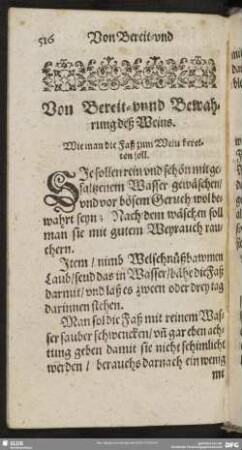 516 Von Bereit-vnd
Von Bereit-vnnd Bewah-
rung deß Weins.
Wie man die Faß zum Wein berei-
ten soll.
SJe sollen rein vnd schön mit ge-
saltzenem Wasser gewäschen/
vnd vor bösem Geruch wol be-
wahrt seyn: Nach dem wäschen soll
man sie mit gutem Weyrauch rau-
chern.
Item / nimb Welschnüßbawmen
Laub/seud das in Wasser/bähe die Faß
darmit/vnd laß es zween oder drey tag
darinnen stehen.
Man sol die Faß mit reinem Was-
ser sauber schwencken/ vñ gar eben ach-
tung geben damit sie nicht schimlicht
werden / berauchs darnach ein wenig
mit
SLUB